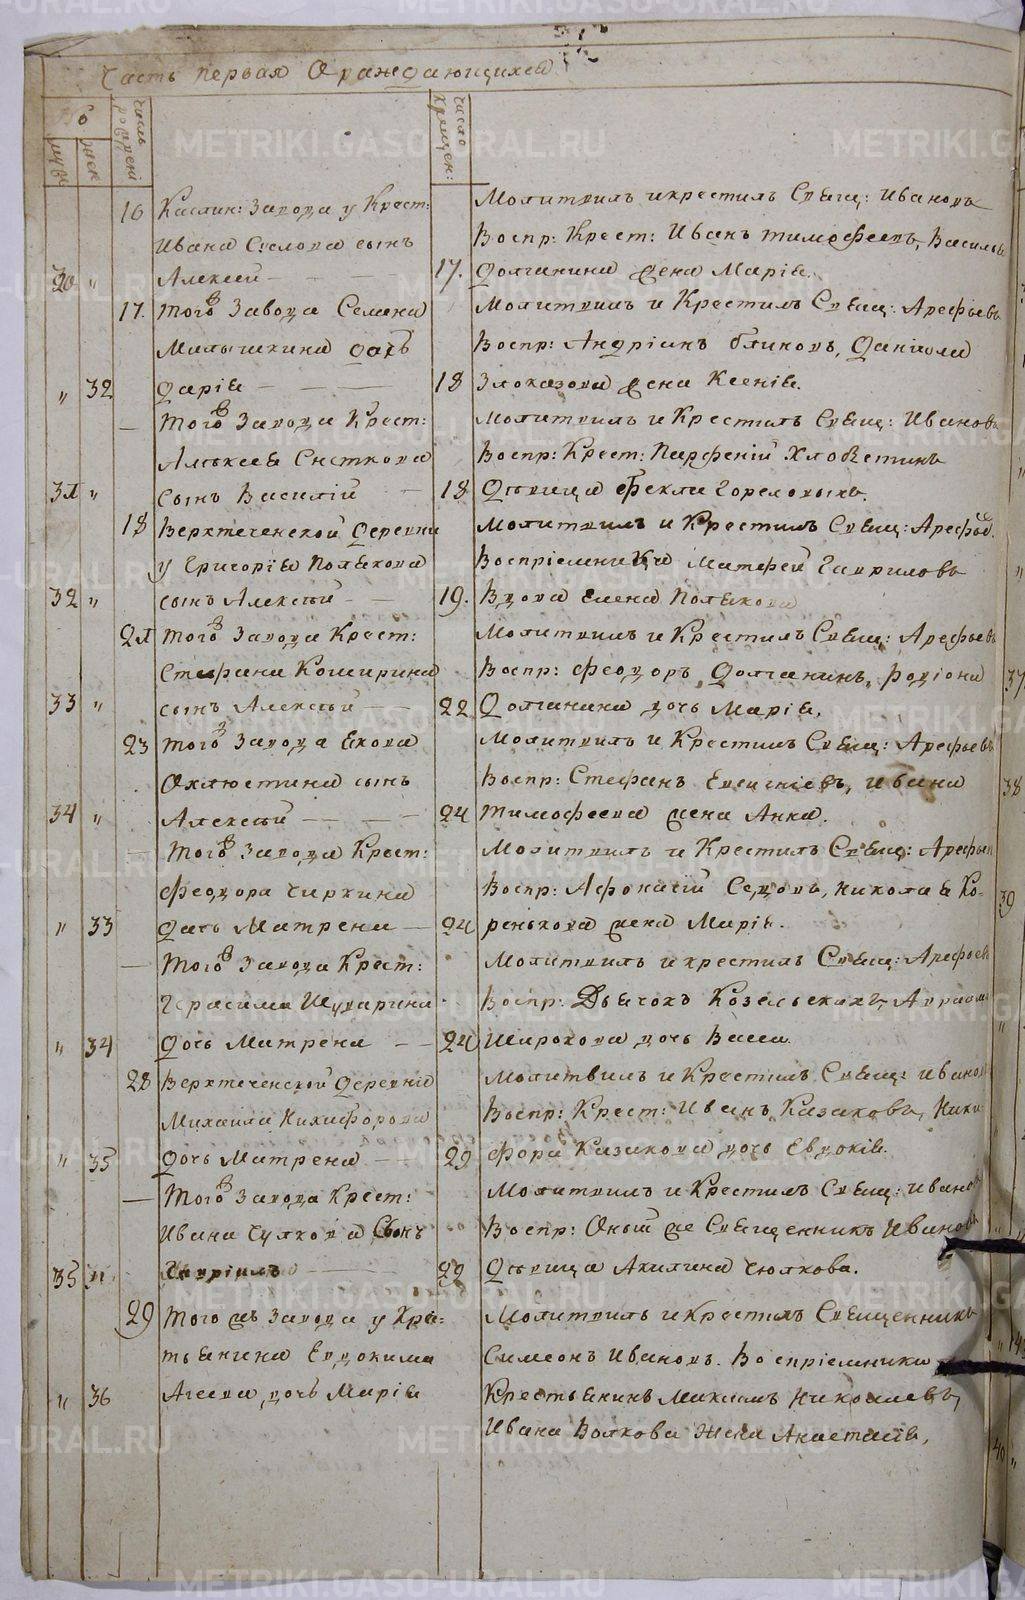 Часть первая О раждающихся
№
муж: жен
Число рождені
Число крещен:
16 Каслин: Завода у Крест:
Ивана Суслова сынъ
30 " Алексей
Молитвилъ и крестилъ Свящ: Ивановъ
Воспр: Крест: Иванъ Тимофеевъ, Василья
17. Долганина жена Марія.
17. Того Завода Семена
Малышкина дочь
" 32 Дарія
Молитвилъ и Крестилъ Свящ: Арефьевъ
Воспр: Андріанъ Блиновъ, Даніила
18 Злоказова жена Ксенія.
— Того Завода Крест:
Алексея Сн
31 " сынъ Василій
Молитвилъ и Крестилъ Свящ: Ивановъ
Воспр: Крест: Парфеній Хлобетинъ
18 Девица Фекла Гореловыхъ.
18 Верхтеченской Деревни
у Григорія Полякова
32 " сынъ Алексѣй
Молитвилъ и Крестилъ Свящ: Арефье
Воспріемники Матфей Гавриловъ
19. Вдова Елена Полякова
21 Того Завода Крест:
Стефана Кошкрина
33 " сынъ Алексѣй
Молитвилъ и Крестилъ Свящ: Арефьевъ
Воспр: Феодоръ Долганинъ, Родіона
22 Долганина дочь Марія.
23 Того Завода Якова
Охлюстина сынъ
34 " Алексѣй
Молитвилъ и Крестилъ Свящ: Арефьевъ
Воспр: Стефанъ Евсигніевъ, Ивана
24 Тимофеева жена Анна.
— Того Завода Крест:
Феодора Чиркина
" 33 Дочь Матрена
Молитвилъ и Крестилъ Свящ: Арефьев
Воспр: Афонасій Седовъ, Николая Ко-
24 ренькова жена Марія.
— Того Завода Крест:
Герасима Шударина
" 34 Дочь Матрена
Молитвилъ и крестилъ Свящ: Арефьев
Воспр: Дьячокъ Козельскихъ, Авраам
24 Широкова дочь Васса.
28 Верхтеченской Деревни
Михаила Никифорова
" 35 Дочь Матрена
Молитвилъ и Крестилъ Свящ: Иванов
Воспр: Крест: Иванъ Казаковъ, Ники
29 фора Казакова дочь Евдокія.
— Того Завода Крест:
Ивана Чулкова Сынъ
35 " Гавріилъ
Молитвилъ и Крестилъ Свящ: Ивановъ
Воспр: Оный же Священникъ Ивановъ
29 Девица Акилина Чюлкова.
29 Того жъ Завода у Кре-
тьянина Евдокима
" 36 Агеева дочь Марія
Молитвилъ и Крестилъ Священникъ
Симеонъ Ивановъ. Воспріемники
Крестьянинъ Максимъ Николаевъ,
Ивана Волкова Жена Анастасія,
37
38
39
40